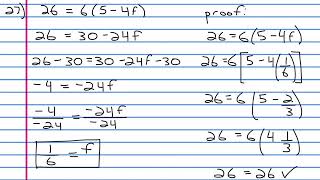 27) 26 = 6(5 - 4f)
26 = 30 - 24f
26 - 30 = 30 - 24f - 30
-4 = -24f
-4/-24 = -24f/-24
1/6 = f
proof:
26 = 6(5 - 4f)
26 = 6[5 - 4(1/6)]
26 = 6(5 - 2/3)
26 = 6(4 1/3)
26 = 26 ✓